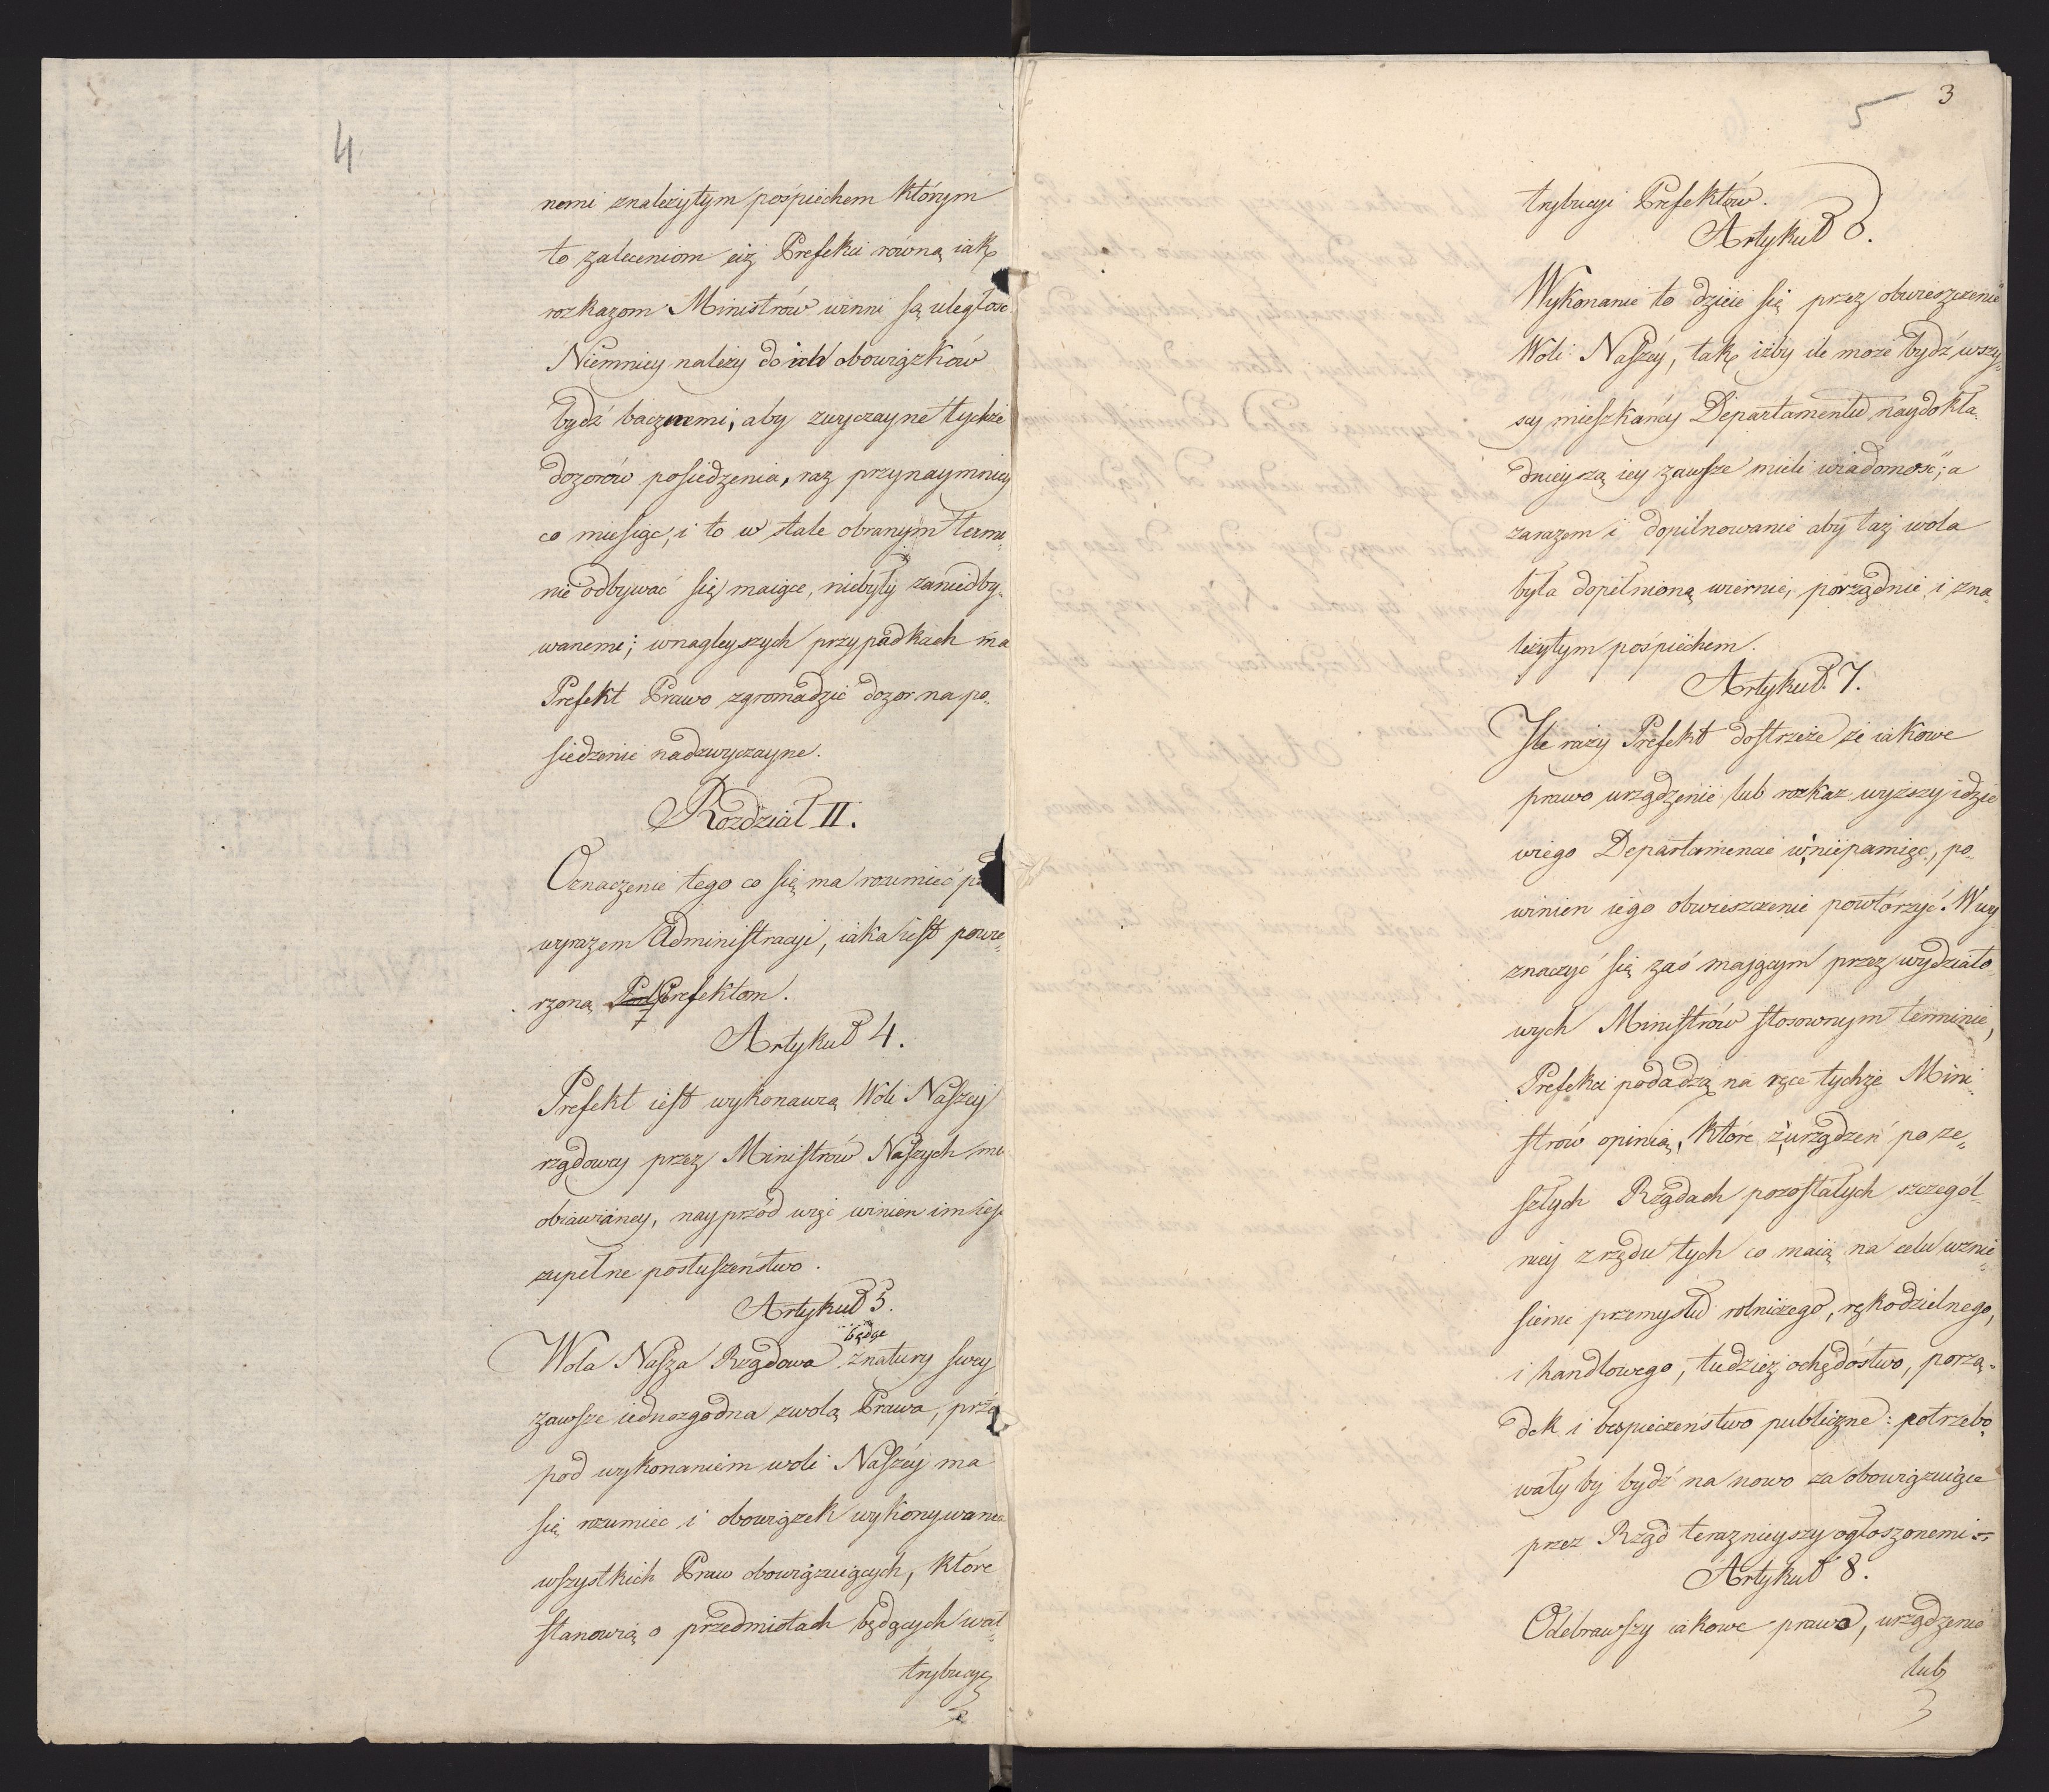 4
nemi znależytym pośpiechem którym
to zaleceniom ciż Prefekci równą iak
rozkazom Ministrów winni są uległość
Niemniey należy do ich obowiązków
bydź bacznemi, aby zwyczayne tychże
dozorów posiedzenia, raz przynaymniey
co miesiąc, i to w stale obranym termi„
nie odbywać się maiące, niebyły zaniedby„
wanemi; wnagleyszych przypadkach ma
Prefekt Prawo zgromadzić dozor na po„
siedzenie nadzwyczayne.
Rozdział II.
Oznaczenie tego co się ma rozumieć
wyrazem Administracyi, iaka iest powie„
rzoną Prefektom.
Artykuł 4.
Prefekt iest wykonawcą Woli Naszey
rządowey przez Ministrów Naszych mu
obiawianey, nayprzód więc winien im iest
zupełne posłuszeństwo.
Artykuł 5.
będąc
Wola Nasza Rządowa znatury swey
zawsze iednozgodna zwolą Prawa, prze
pod wykonaniem woli Naszey ma
się rozumieć i obowiązek wykonywania
wszystkich Praw obowiązuiących, które
stanowią o przedmiotach będących wat„
trybucyi
3
5
trybucyi Prefektów.
Artykuł 6.
Wykonanie to dzieie się przez obwieszczenie
Woli Naszey, tak, iżby ile może bydź wszy„
scy mieszkańcy Departamentu naydokła„
dnieyszą iey zawsze mieli wiadomość, a
zarazem i dopilnowanie aby taż wola
była dopełnioną wiernie, porządnie i zna„
leżytym pośpiechem.
Artykuł 7.
Ile razy Prefekt dostrzeże że iakowe
prawo urządzenie lub rozkaz wyższy idzie
wiego Departamencie w niepamięć, po„
winien iego obwieszczenie powtórzyć. Wwy
znaczyć się zaś maiącym przez wydziało„
wych Ministrów stosownym terminie,
Prefekci podadzą na ręce tychże Mini„
strów opinią, które z urządzeń po ze„
szłych Rządach pozostałych szczegól„
niey z rzędu tych co maią na celu wznie„
sienie przemysłu rolniczego, rękodzielnego,
i handlowego, tudzież ochędóstwo, porzą„
dek i bespieczeństwo publiczne: potrzebo„
wały by bydź na nowo za obowiązuiące
przez Rząd teraznieyszy ogłoszonemi.
Artykuł 8.
Odebrawszy iakowe prawo, urządzenie
lub